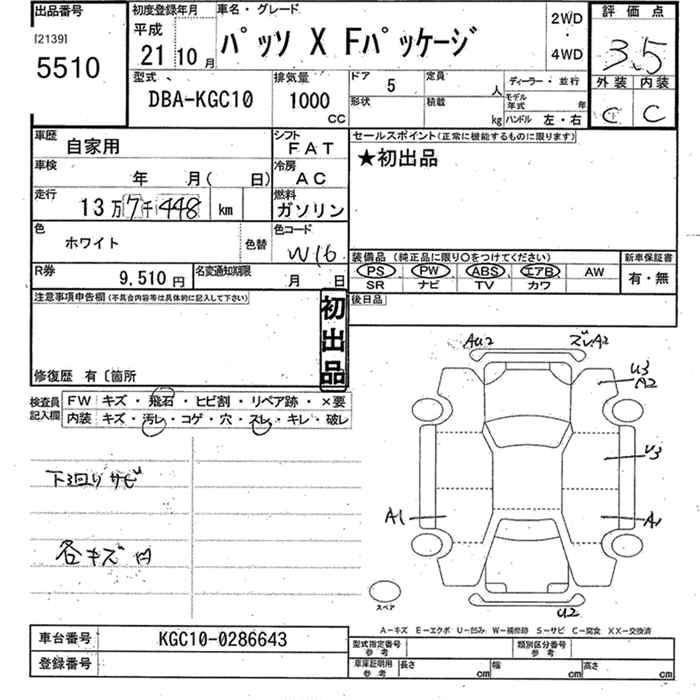 出品番号
[2139]
5510
初度登録年月
平成
21 10 月
車名・グレード
パッソ X Fパッケージ
2WD
・
4WD
評価点
3.5
外装 内装
C C
型式
DBA-KGC10
排気量
1000
CC
ドア 5
定員 人
形状
積載 kg
ディーラー・並行
モデル年式 年
ハンドル 左・右
車歴 自家用
シフト
FAT
車検 年 月( 日)
冷房
AC
走行
13万7千448 km
燃料
ガソリン
色 ホワイト
色替
色コード
W16
R券 9,510円
名変通知期限 月 日
セールスポイント(正常に機能するものに限ります)
★初出品
装備品 (純正品に限り○をつけてください)
PS PW ABS エアB AW
SR ナビ TV カワ
新車保証書
有・無
注意事項申告欄(不具合内容等は具体的に記入して下さい)
初出品
後日品
修復歴 有〔箇所
検査員記入欄
FW キズ・飛石・ヒビ割・リペア跡・×要
内装 キズ・汚レ・コゲ・穴・スレ・キレ・破レ
下廻りサビ
各キズ凹
AU2
ズレA2
U3
A2
U3
A1
A1
U2
スペア
A－キズ E－エクボ U－凹み W－補修跡 S－サビ C－腐食 XX－交換済
車台番号 KGC10-0286643
登録番号
型式指定番号
参考
類別区分番号
参考
車庫証明用
参考
長さ cm
幅 cm
高さ cm